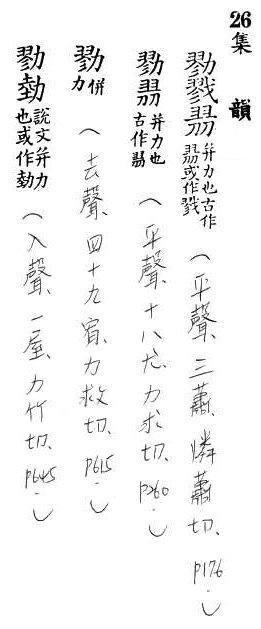 26集韻
勠戮 并力也古作或作戮（平聲、三蕭、憐蕭切、p176.）
勠 并力也古作（平聲、十八尤、力求切、p260.）
勠 併力（去聲、四十九宥、力救切、p615.）
勠勎 說文并力也或作勎（入聲、一屋、力竹切、p645.）